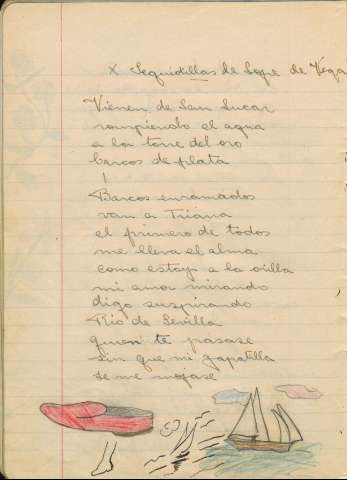 X Seguidillas de Lope de Vega
Vienen de San Lucar
rompiendo el agua
a la torre del oro
barcos de plata
Barcos enramados
van a Triana
el primero de todos
me lleva el alma
como estoy a la orilla
mi amor mirando
digo suspirando
Rio de Sevilla
quien te pasase
sin que mi zapatilla
se me mojase